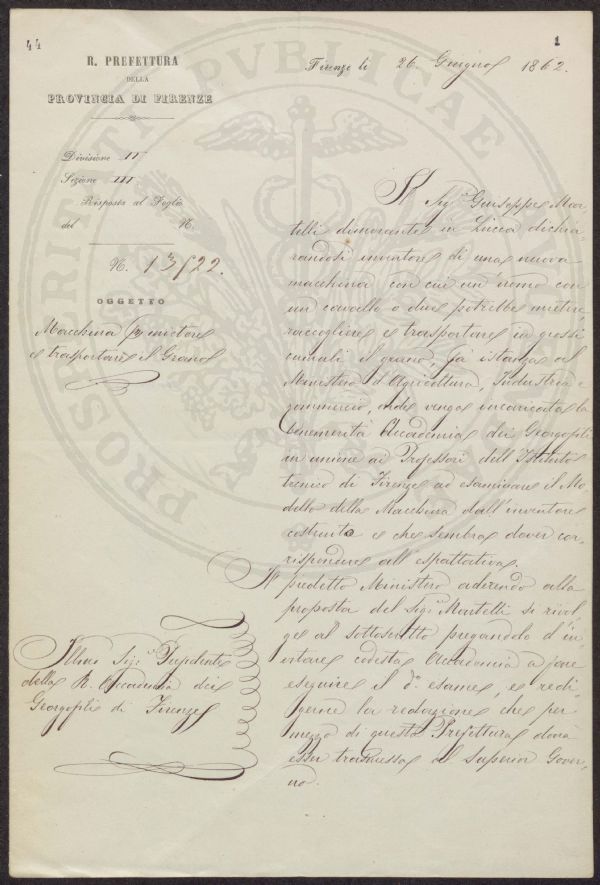 44
1
R. PREFETTURA
DELLA
PROVINCIA DI FIRENZE
Firenze li 26 Giugno 1862.
Divisione II
Sezione III
Risposta al Foglio
del N.
N. 13522.
OGGETTO
Macchina per mietere
e trasportare il Grano
Il Sig.r Giuseppe Mar-
telli dimorante in Lucca dichia-
randosi inventore di una nuova
macchina con cui un uomo con
un cavallo o due potrebbe mietere
raccogliere e trasportare in grossi
cumuli il grano, fa istanza al
Ministero d'Agricoltura, Industria e
Commercio, onde venga incaricata la
benemerita Accademia dei Georgofili
in unione ai Professori dell'Istituto
tecnico di Firenze ad esaminare il Mo
dello della Macchina dall'inventore
costruita e che sembra dover cor-
rispondere all'espettativa.
Il predetto Ministero aderendo alla
proposta del Sig.r Martelli si rivol-
ge al sottoscritto pregandolo d'in-
vitare codesta Accademia a fare
eseguire il d.o esame, e redi-
gerne la relazione che per
mezzo di questa Prefettura dovrà
esser trasmessa al Superior Gover-
no.
Illmo Sig.r Presidente
della R. Accademia dei
Georgofili di Firenze
PROSPERITATI PVBLICAE